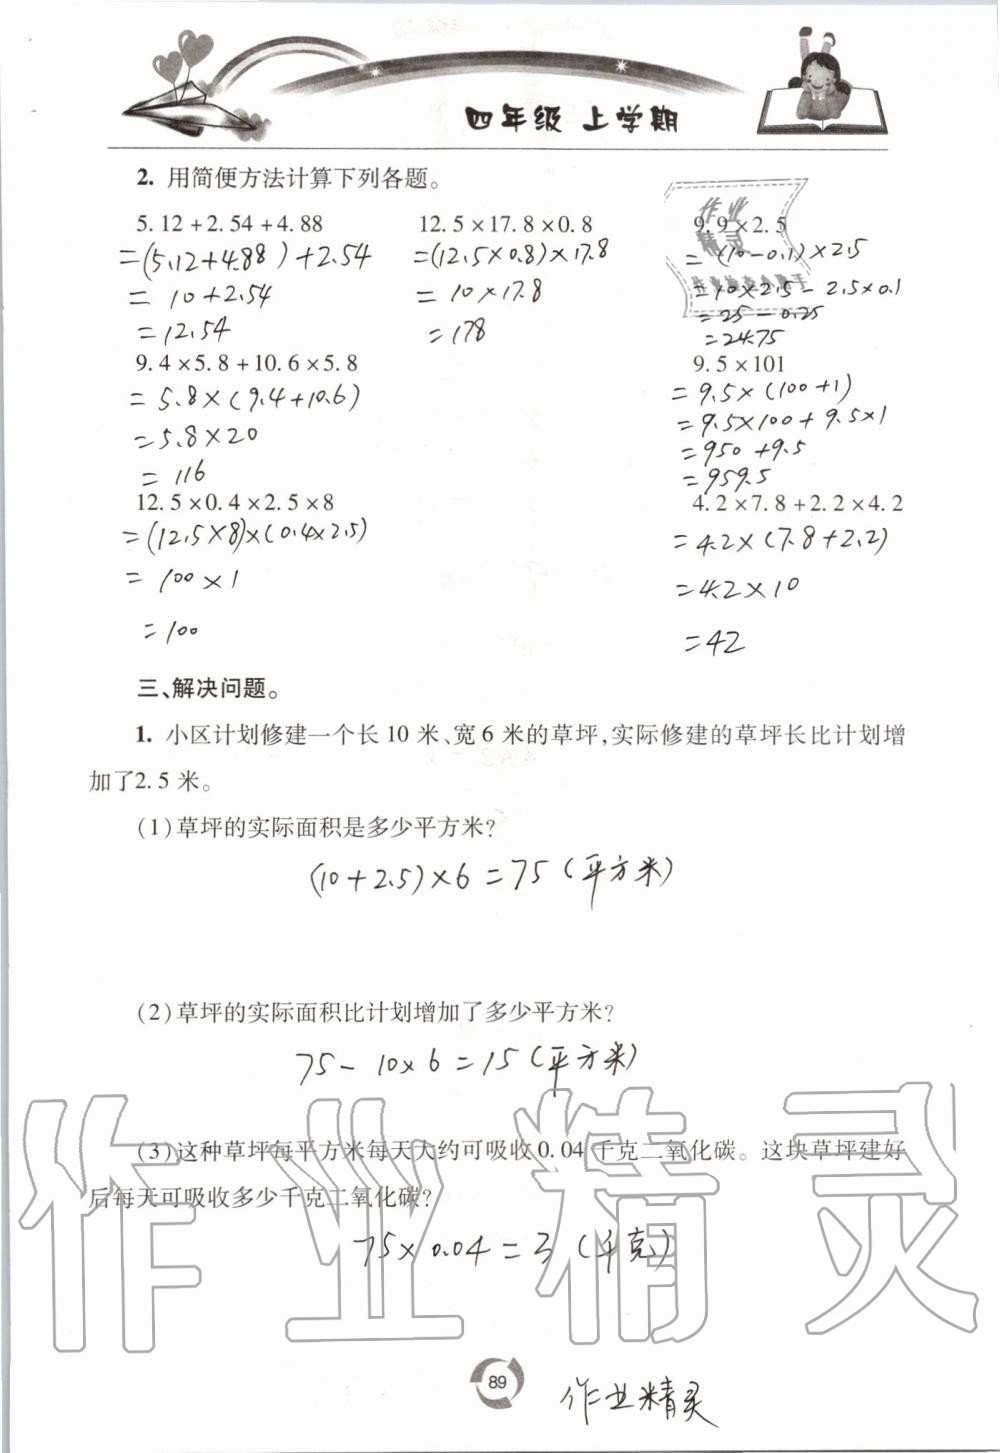 四年级 上学期
2. 用简便方法计算下列各题。
5.12+2.54+4.88 12.5×17.8×0.8 9.9×2.5
=(5.12+4.88)+2.54 =(12.5×0.8)×17.8 =(10-0.1)×2.5
=10+2.54 =10×17.8 =10×2.5-2.5×0.1
=12.54 =178 =25-0.25
=24.75
9.4×5.8+10.6×5.8 9.5×101
=5.8×(9.4+10.6) =9.5×(100+1)
=5.8×20 =9.5×100+9.5×1
=116 =950+9.5
=959.5
12.5×0.4×2.5×8 4.2×7.8+2.2×4.2
=(12.5×8)×(0.4×2.5) =4.2×(7.8+2.2)
=100×1 =4.2×10
=100 =42
三、解决问题。
1. 小区计划修建一个长10米、宽6米的草坪,实际修建的草坪长比计划增
加了2.5米。
(1)草坪的实际面积是多少平方米?
(10+2.5)×6=75(平方米)
(2)草坪的实际面积比计划增加了多少平方米?
75-10×6=15(平方米)
(3)这种草坪每平方米每天大约可吸收0.04千克二氧化碳。这块草坪建好
后每天可吸收多少千克二氧化碳?
75×0.04=3(千克)
作业精灵
89
作业精灵
作业
精灵